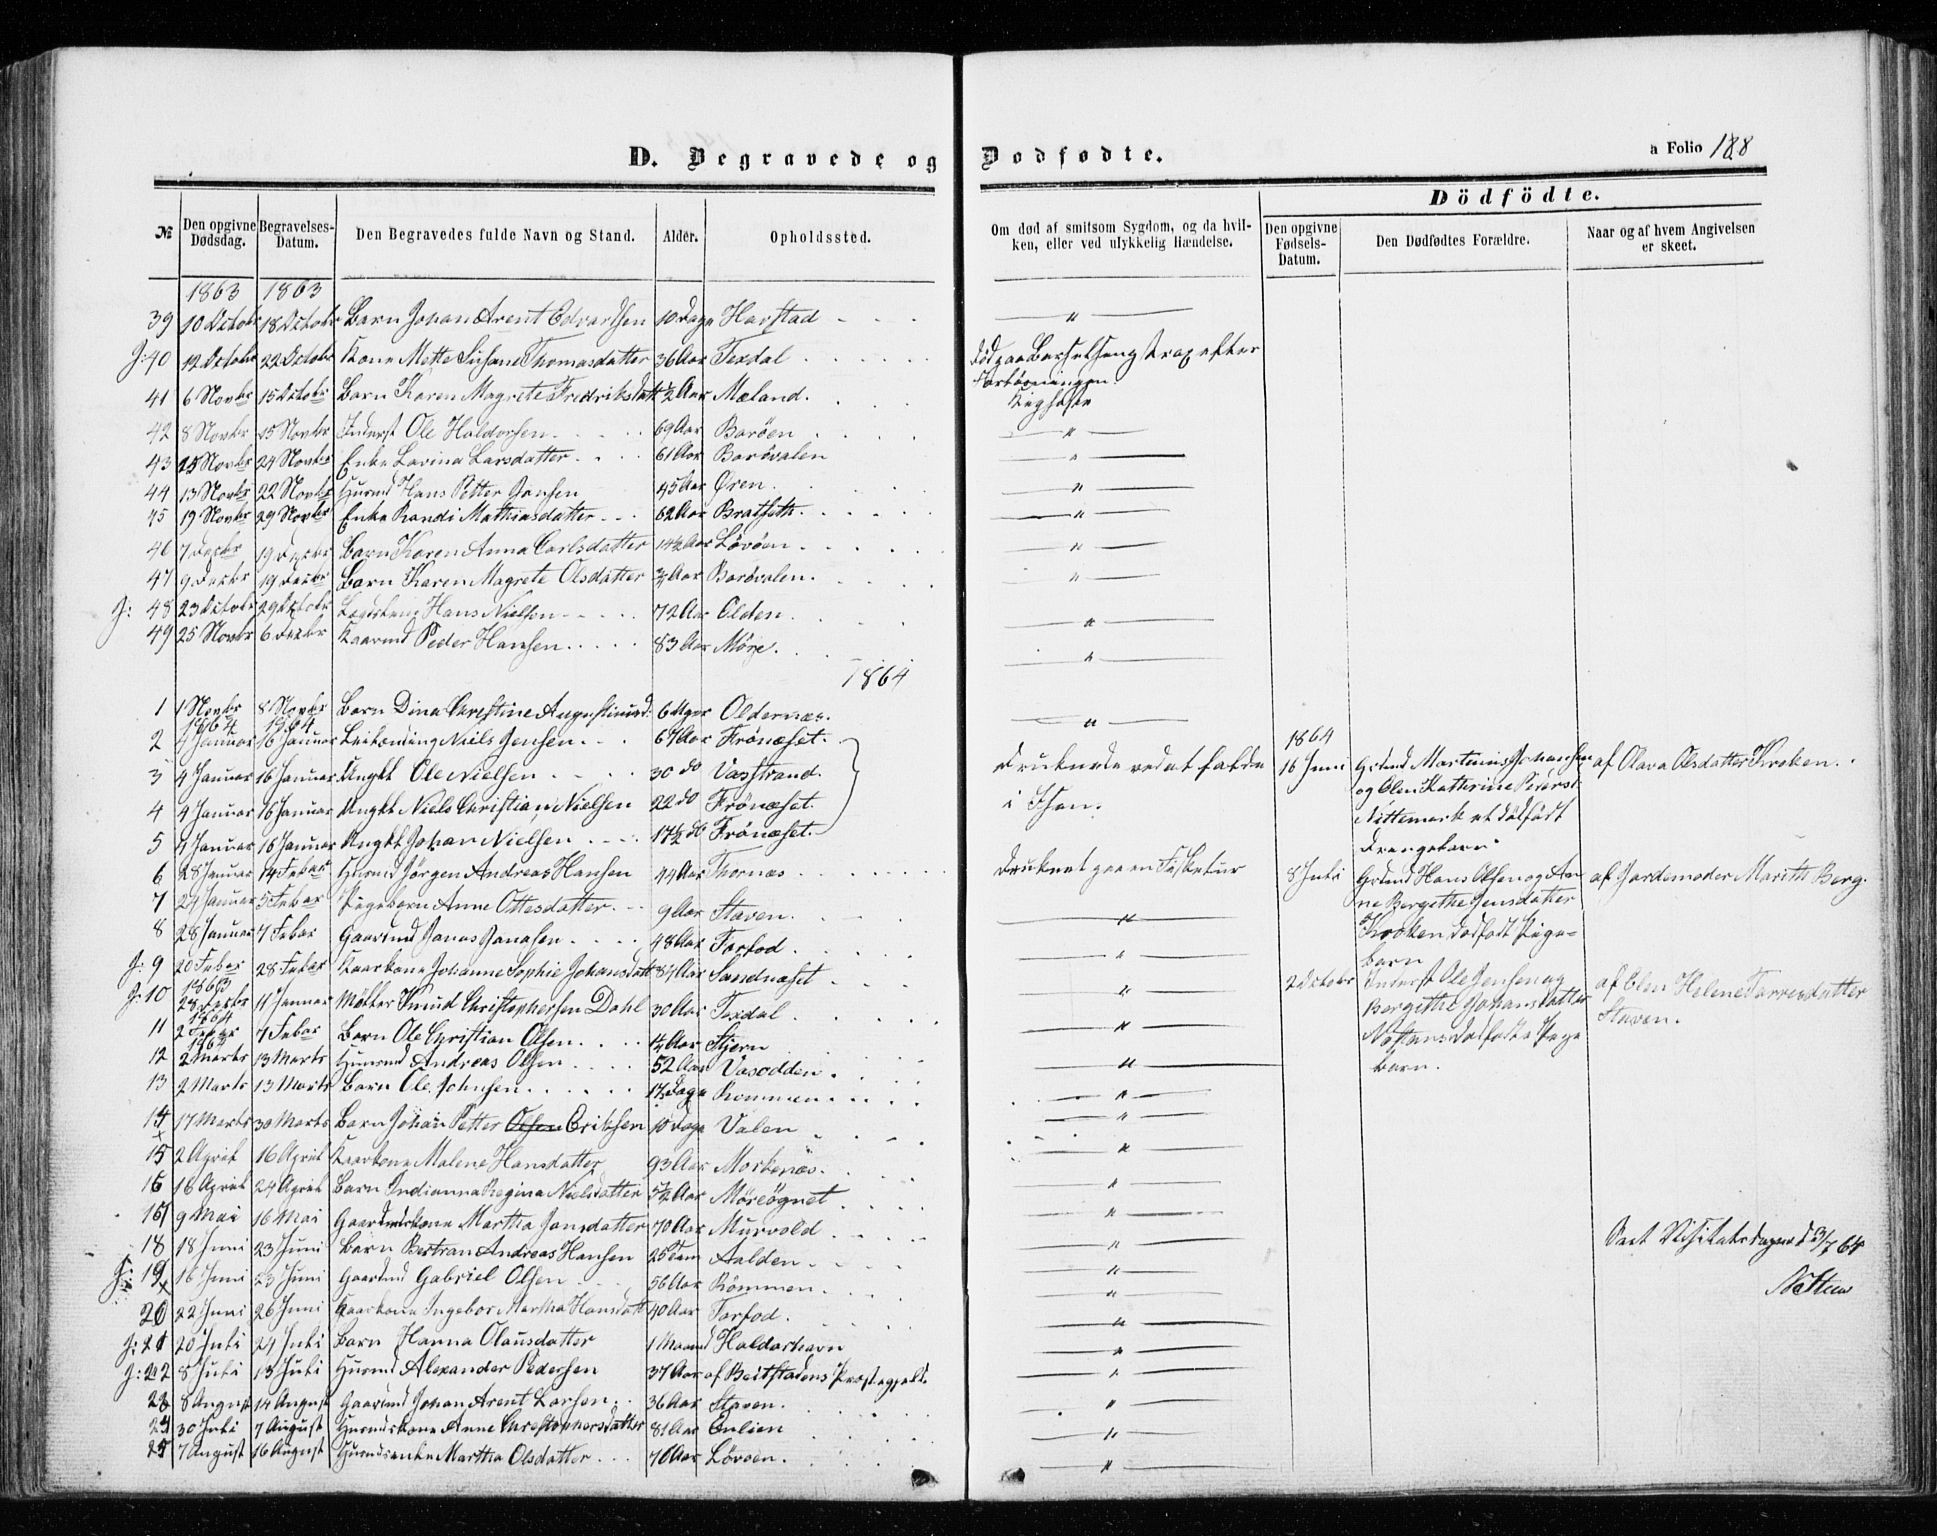 D. Begravede og Dodfodte.
a Folio 188
Dödfödte.
№ Den opgivne Dødsdag. Begravelses-Datum. Den Begravedes fulde Navn og Stand. Alder. Opholdssted. Om død af smitsom Sygdom, og da hvilken, eller ved ulykkelig Hændelse. Den opgivne Fødsels-Datum. Den Dødfødtes Forældre. Naar og af hvem Angivelsen er skeet.
1863 1863
39 10 Octobr 18 Octobr Barn Johan Arent Edvardsen 10 Dage Havstad "
J: 40 12 Octobr 22 Octobr Kone Mette Susane Thomasdatter 36 Aar Texdal Död paa Barselseng strax efter
41 6 Novbr 15 Octobr Barn Karen Magrete Fredriksdatt 1½ Aar Mæland. Kighoste
42 8 Novbr 15 Novbr Inderst Ole Haldorsen 69 Aar Baröen "
43 15 Novbr 24 Novbr Enke Lavina Larsdatter 61 Aar Barövalen "
44 13 Novbr 22 Novbr Huusmd Hans Petter Jansen 45 Aar Øren. "
45 19 Novbr 29 Novbr Enke Randi Mathiasdatter 62 Aar Bratseth. "
46 7 Decbr 19 Decbr Barn Karen Anna Carlsdatter 14½ Aar Lövöen "
47 9 Decbr 19 Decbr Barn Karen Magrete Olsdatter ¾ Aar Barövalen. "
J: 48 23 Octobr 29 Octobr Hans Nielsen 72 Aar Olden. "
49 25 Novbr 6 Decbr Kaarmd Peder Hansen 83 Aar Möre. "
1864
1 1 Novbr 8 Novbr Barn Dina Christine Augustinusd: 6 Uger Oldernæs. "
1864 1864
2 4 Januar 16 Januar Leilending Niels Jensen 67 Aar Frönæset.
3 4 Januar 16 Januar Ungkl Ole Nielsen 30 do Vasstrand. Druknede ved at falde
4 4 Januar 16 Januar Ungkl Niels Christian Nielsen 22 do Frönæset. i Isen.
5 4 Januar 16 Januar Ungkl Johan Nielsen 17½ do Frönæset.
6 28 Januar 14 Febar Huusmd Jörgen Andreas Hansen 44 Aar Thornæs Druknet paa en Fisketur
7 29 Januar 5 Febar Pigebarn Anne Ottesdatter 9 Aar Staven. "
8 28 Januar 7 Febar Gaardmd Jonas Jonasen 48 Aar Tarfod "
J: 9 20 Febar 28 Febar Kaarkone Johanne Sophie Johansdatt 84 Aar Sandnæset "
1863
J: 10 28 Decbr 11 Januar Möller Knud Christophersen Dahl 30 Aar Texdal "
1864
11 2 Febar 7 Febar Barn Ole Christian Olsen 1¼ Aar Stjern "
12 2 Marts 13 Marts Huusmd Andreas Olsen 52 Aar Vasodden "
13 2 Marts 13 Marts Barn Ole Johnsen 17 Dage Rommen "
14 17 Marts 30 Marts Barn Johan Petter Olsen Eriksen 10 Dage Valen "
15 2 April 16 April Kaarkone Malene Hansdatter 93 Aar Morkenæs. "
16 16 April 24 April Barn Indianna Regina Nielsdatter 5½ Aar Möreögnet "
17 9 Mai 16 Mai Gaardmdskone Martha Jonsdatter 70 Aar Murvold "
18 18 Juni 23 Juni Barn Bertran Andreas Hansen 25 Tim Aalden "
J: 19 16 Juni 23 Juni Gaardmd Gabriel Olsen 56 Aar Römmen "
20 22 Juni 26 Juni Kaarkone Ingebor Martha Hansdatt 40 Aar Tarfod. "
J: 21 20 Juli 24 Juli Barn Hanna Olausdatter 1 Maaned Haldorhavn "
J: 22 8 Juli 13 Juli Huusmd Alexander Pedersen 37 Aar af Beitstadens Præstegjeld. "
23 8 August 14 August Gaardmd Johan Arent Larsen 36 Aar Staven. "
24 30 Juli 7 August Huusmdskone Anne Christophersdatter 81 Aar Enlien "
25 7 August 16 August Huusmdsenke Martha Olsdatter 70 Aar Lövöen. "
1864
16 Juni Grdmd Martinius Johansen af Olava Olsdatter Kroken.
og Elen Katherine
et dödfödt
Drengebarn
8 Juli Grdmd Hans Olsen og An af Jordemoder Marith Berg.
ne Bergithe Jensdatter
Kroken dödfödt Pige-
barn
2 Octobr Inderst Ole Jensen og af Elen Helene Torresdatter
Bergithe Johansdatter Staven.
dödfödte Pige
barn.
Seet Visitatsdagen d 3/7 64